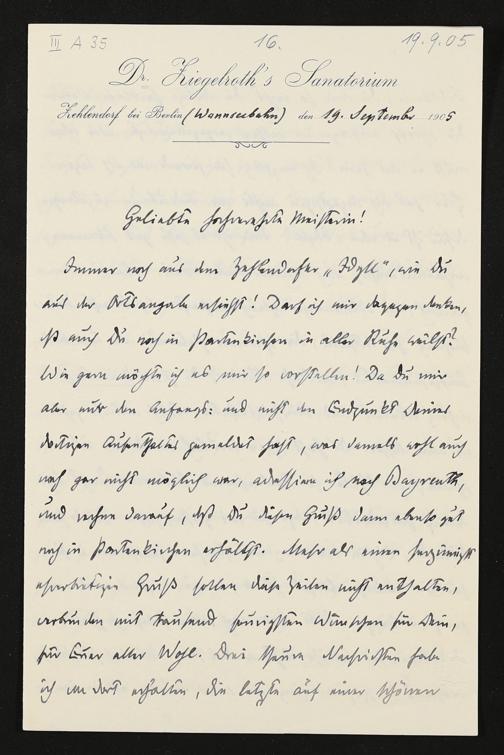 III A 35 16. 19.9.05
Dr. Ziegelroth's Sanatorium
Zehlendorf bei Berlin (Wannseebahn) den 19. September 1905
Geliebte hochverehrte Meisterin!
Immer noch aus dem Zehlendorfer „Idyll", wie Du
aus der Ortsangabe ersiehst! Darf ich mir dagegen denken,
daß auch Du noch in Partenkirchen in aller Ruhe weilst?
Wie gern möchte ich es mir so vorstellen! Da Du mir
aber nur den Anfangs: und nicht den Endpunkt Deines
dortigen Aufenthaltes gemeldet hast, was damals wohl auch
noch gar nicht möglich war, adressiere ich nach Bayreuth,
und rechne darauf, daß Du diesen Gruß dann ebenso gut
noch in Partenkirchen erhältst. Mehr als einen herzinnigst
ehrerbietigen Gruß sollen diese Zeilen nicht enthalten,
verbunden mit tausend feurigsten Wünschen für Dein,
für Euer aller Wohl. Drei theure Nachrichten habe
ich von dort erhalten, die letzte auf einer schönen